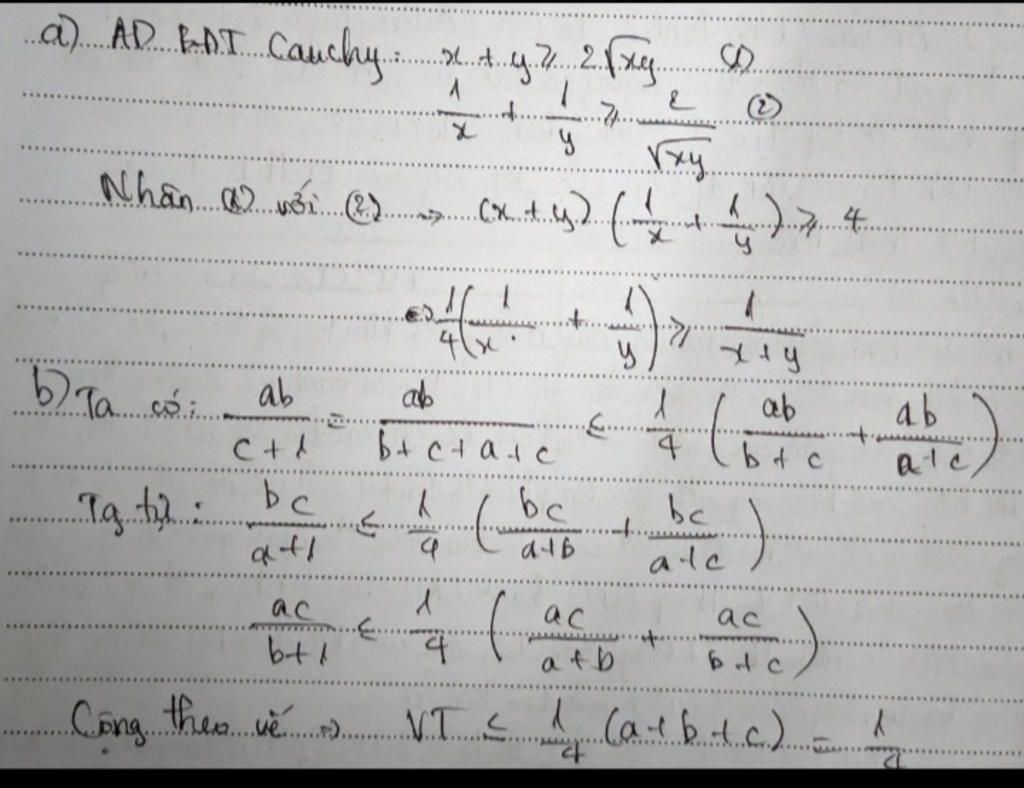 a) AD BĐT Cauchy: x + y ≥ 2√xy (1)
1/x + 1/y ≥ 2/√xy (2)
Nhân (1) với (2) => (x + y) (1/x + 1/y) ≥ 4
<=> 1/4 (1/x + 1/y) ≥ 1/(x + y)
b) Ta có: ab/(c+1) = ab/(b+c+a+c) ≤ 1/4 (ab/(b+c) + ab/(a+c))
Tg tự: bc/(a+1) ≤ 1/4 (bc/(a+b) + bc/(a+c))
ac/(b+1) ≤ 1/4 (ac/(a+b) + ac/(b+c))
Cộng theo vế => VT ≤ 1/4 (a+b+c) = 1/4